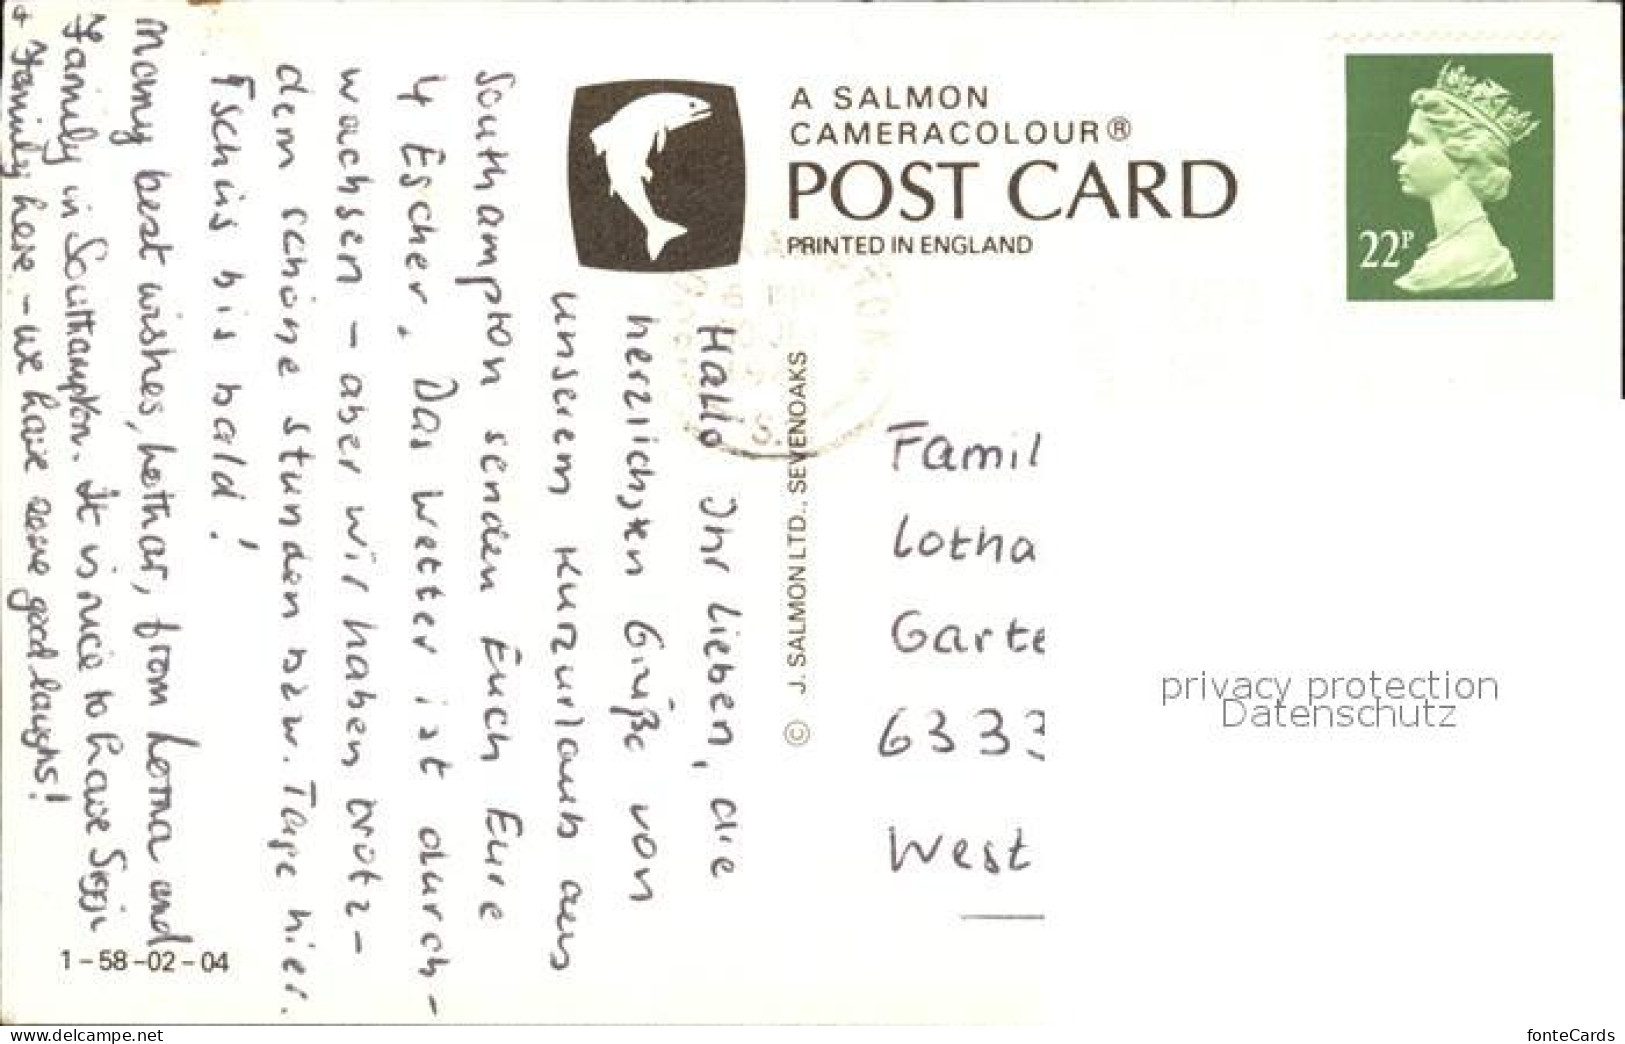 A SALMON
CAMERACOLOUR®
POST CARD
PRINTED IN ENGLAND
22P
Hallo Ihr Lieben, die
herzlichsten Grüße von
unserem Kurzurlaub aus
Southampton senden Euch Eure
4 Escher. Das Wetter ist durch-
wachsen - aber wir haben trotz-
dem schöne Stunden bzw. Tage hier.
Tschüs bis bald!
Many best wishes, Lothar, from Lorna and
Family in Southampton. It is nice to have Siggi
+ Family here - we have some good laughs!
© J. SALMON LTD., SEVENOAKS
Famil
Lotha
Garte
633
West
privacy protection
Datenschutz
1-58-02-04
www.delcampe.net
fonteCards